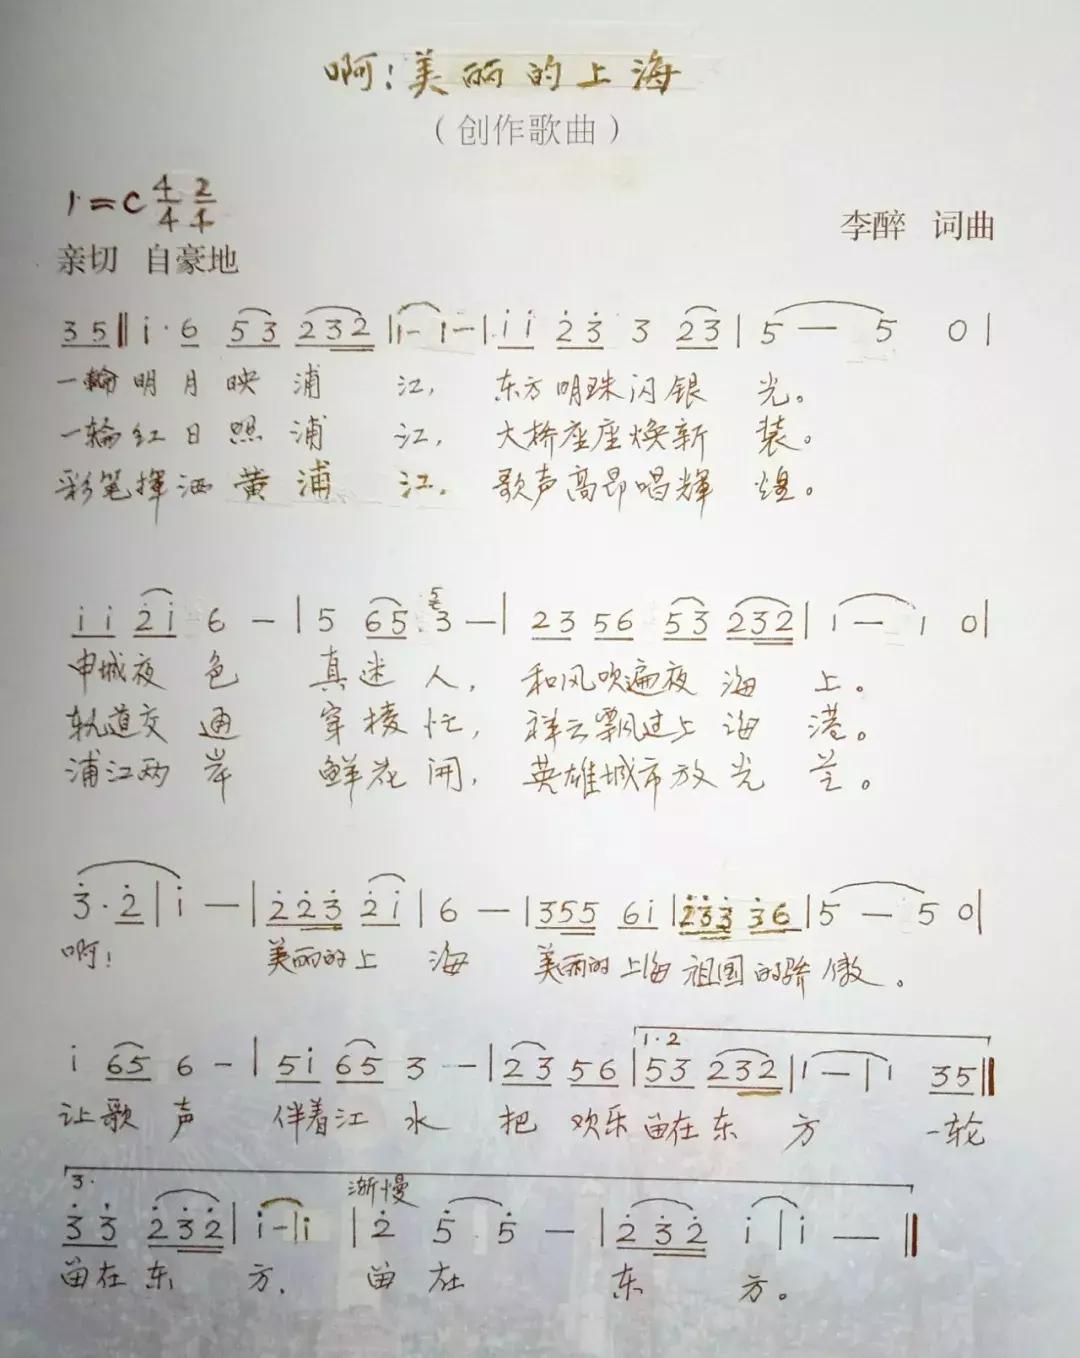 啊!美丽的上海
(创作歌曲)
1=C 4/4 2/4
李醉 词曲
亲切 自豪地
3 5 ‖ i· 6 5 3 2 3 2 | 1 — 1 — | i i 2̇ 3̇ 3 2 3 | 5 — 5 0 |
一轮明月映浦江,东方明珠闪银光。
一轮红日照浦江,大桥座座焕新装。
彩笔挥洒黄浦江,歌声高昂唱辉煌。
i i 2̇ i 6 — | 5 6 5 · 5 3 — | 2 3 5 6 5 3 2 3 2 | 1 — 1 0 |
申城夜色真迷人,和风吹遍夜海上。
轨道交通穿棱忙,祥云飘过上海港。
浦江两岸鲜花开,英雄城市放光芒。
3̇· 2̇ | i — | 2̇ 2̇ 3̇ 2̇ i | 6 — | 3 5 5 6 i | 2̇ 3̇ 3̇ 3̇ 6 | 5 — 5 0 |
啊!美丽的上海 美丽的上海祖国的骄傲。
1·2
i 6 5 6 — | 5 i 6 5 3 — | 2 3 5 6 | 5 3 2 3 2 | 1 — | 1 3 5 ‖
让歌声伴着江水把欢乐留在东方 一轮
3· 渐慢
3̇ 3̇ 2̇ 3̇ 2̇ | i — | i | 2̇ 5̇ 5̇ — | 2̇ 3̇ 2̇ i | i — ‖
留在东方,留在东方。